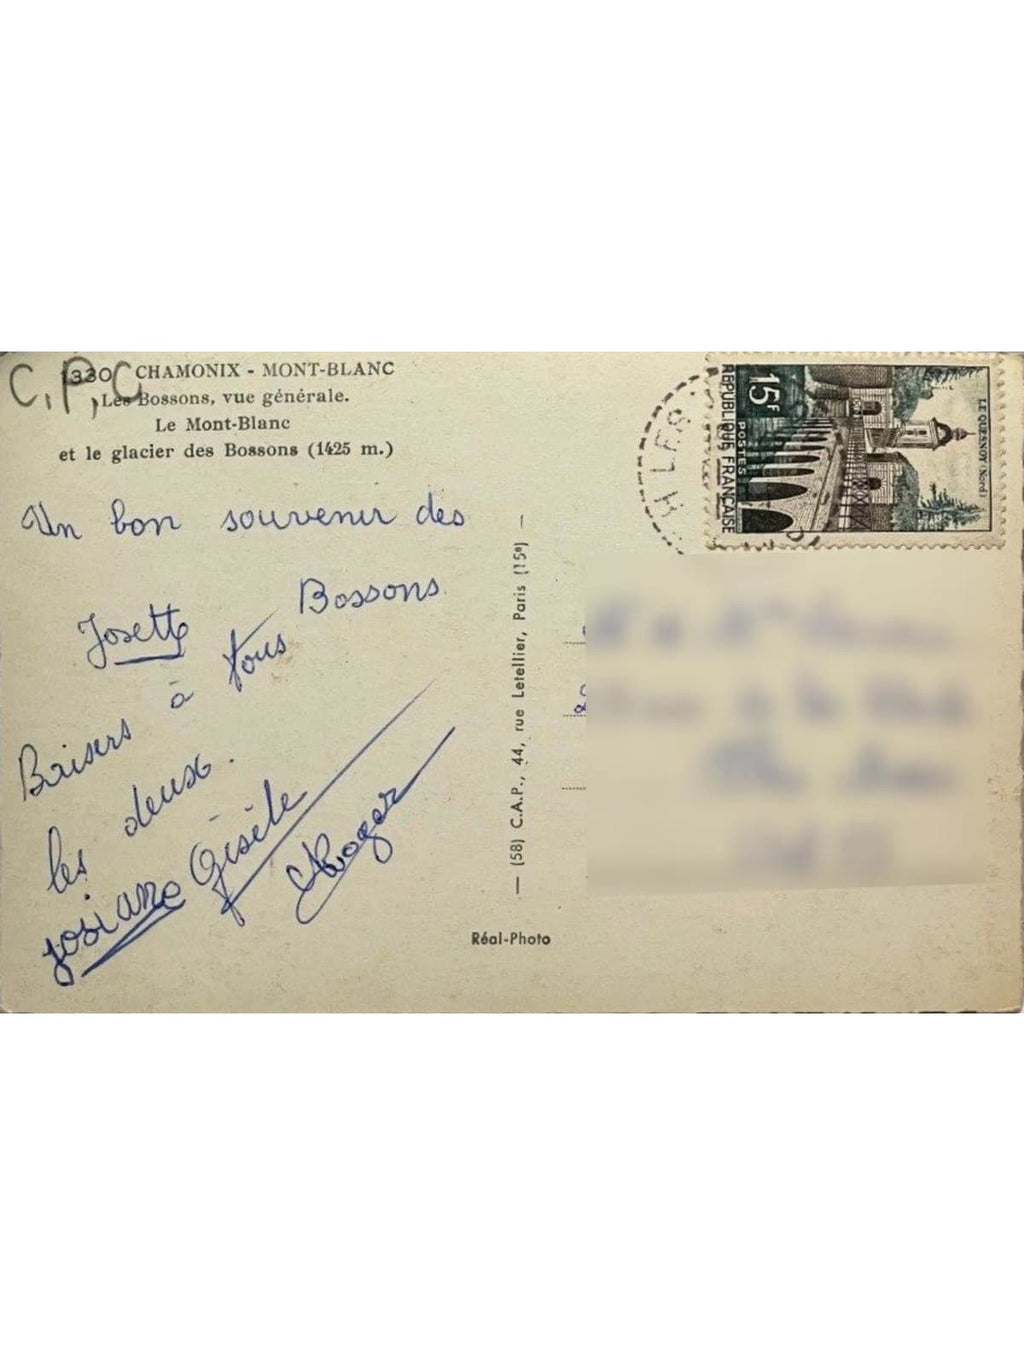 C.P.C
1330 CHAMONIX - MONT-BLANC
Les Bossons, vue générale.
Le Mont-Blanc
et le glacier des Bossons (1425 m.)
Un bon souvenir des
Bossons.
Josette
Baisers à tous
les deux.
Josiane Gisèle
Roger
— (58) C.A.P., 44, rue Letellier, Paris (15e) —
Réal-Photo
H LES
15F
POSTES
RÉPUBLIQUE FRANÇAISE
LE QUESNOY (Nord)